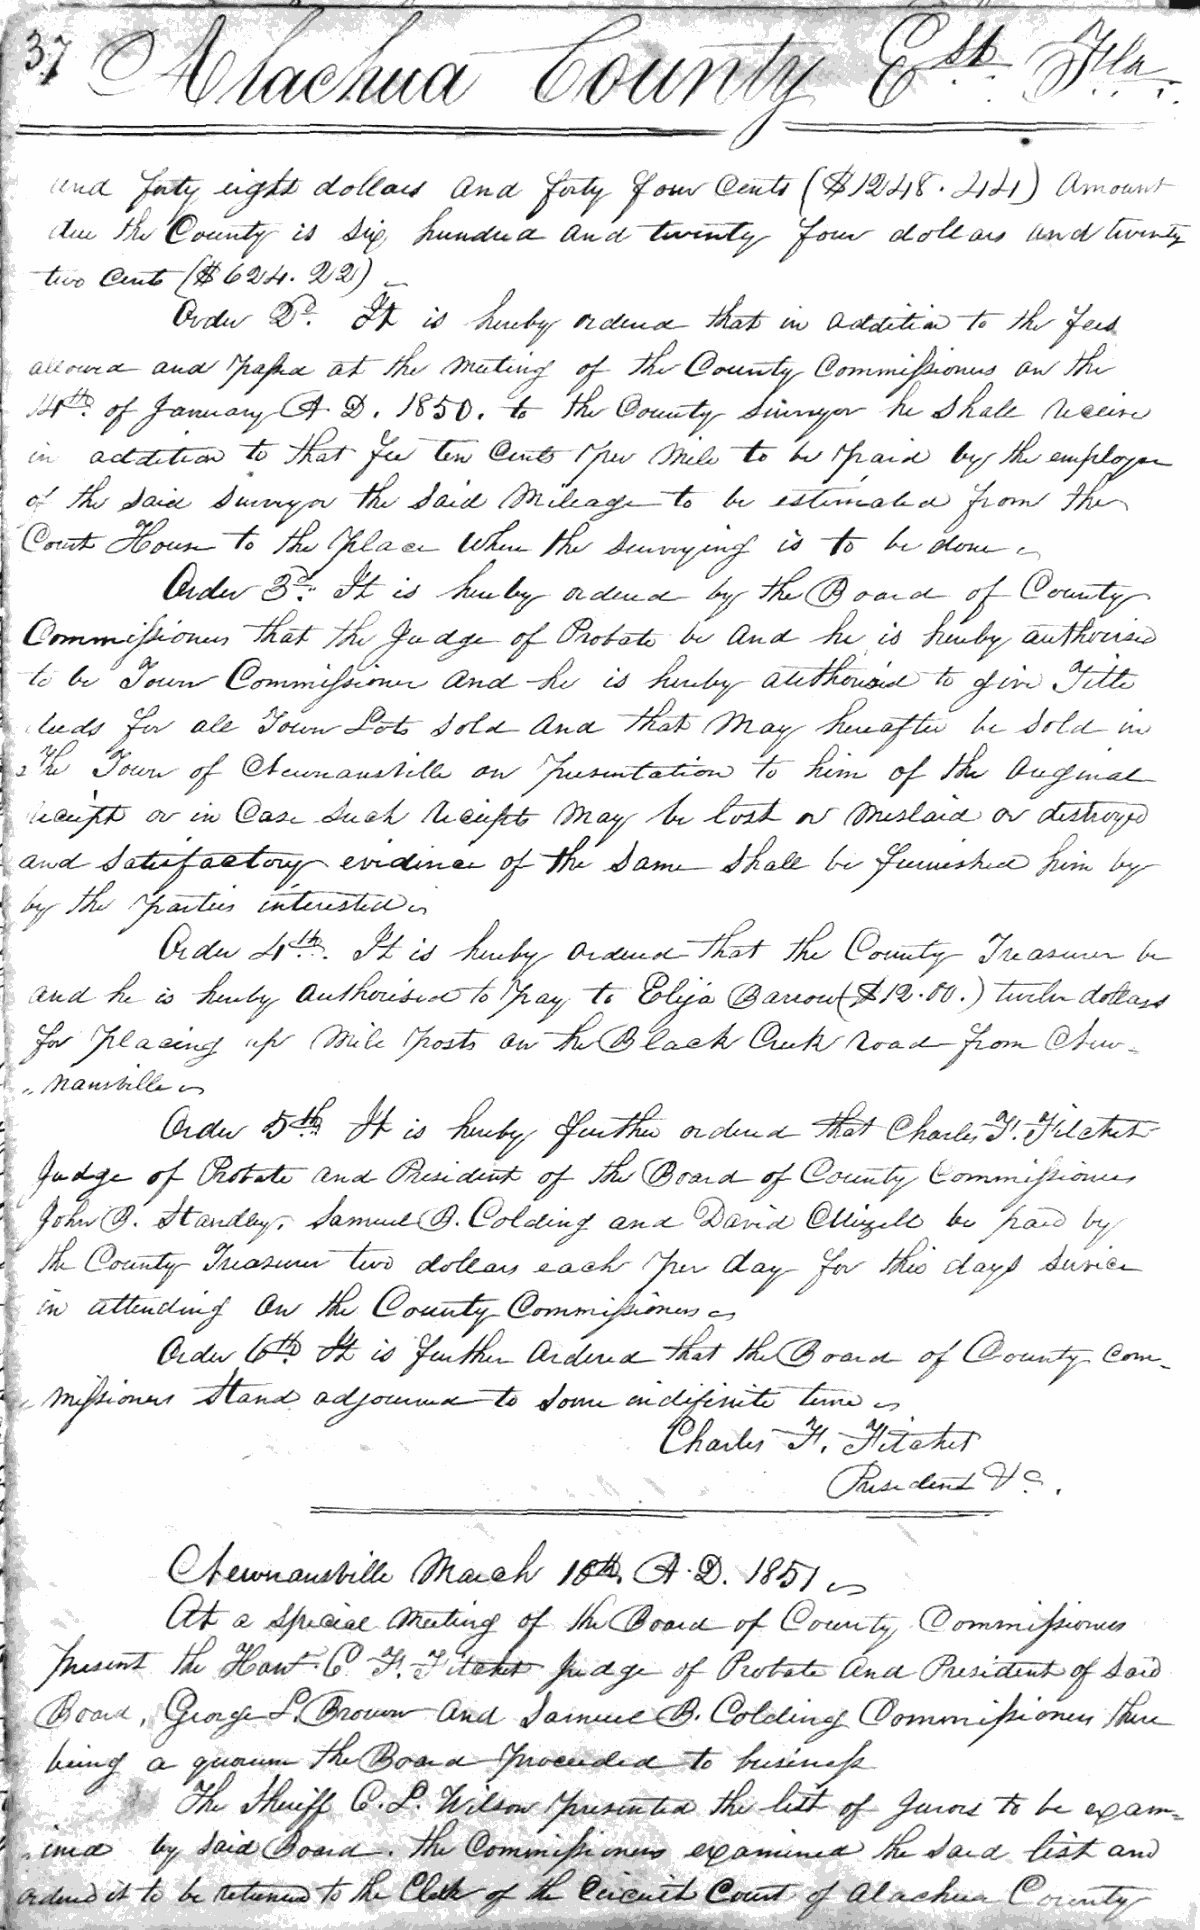 37 Alachua County Est. Fla.
and forty eight dollars and forty four Cents ($1248.44) Amount
due the County is Six, hundred and twenty four dollars and twenty
two Cents ($624.22)
Order 2d. It is hereby ordered that in addition to the fees
allowed and passed at the meeting of the County Commissioners on the
14th. of January A.D. 1850. to the County Surveyor he Shall receive
in addition to that fee ten Cents per Mile to be paid by the employer
of the Said Surveyor the Said Mileage to be estimated from the
Court House to the place when the Surveying is to be done
Order 3d. It is hereby ordered by the Board of County
Commissioners that the Judge of Probate be and he is hereby authorised
to be Town Commissioner and he is hereby authorised to give Title
deeds for all Town Lots Sold and that May hereafter be Sold in
The Town of Newnansville on presentation to him of the Original
receipt or in Case Such receipts May be lost or Mislaid or destroyed
and Satisfactory evidence of the Same Shall be furnished him by
by the parties interested
Order 4th. It is hereby ordered that the County Treasurer be
and he is hereby Authorised to pay to Elija Barrow ($12.00.) twelve dollars
for placing up Mile posts on the Black Creek road from New-
nansville
Order 5th It is hereby further ordered that Charles F. Fitchet
Judge of Probate and President of the Board of County Commissioners
John B. Standley, Samuel B. Colding and David Mizell be paid by
the County Treasurer two dollars each per day for this days Service
in attending on the County Commissioners
Order 6th. It is further Ordered that the Board of County Com-
missioners Stand adjourned to Some indifinite time
Charles F. Fitchet
President &c.
Newnansville March 10th. A.D. 1851
At a Special Meeting of the Board of County Commissioners
present the Hon. C F. Fitchet Judge of Probate and President of Said
Board, George L. Brown and Samuel B. Colding Commissioners there
being a quorum the Board proceeded to business
The Sheriff C. L. Wilson presented the list of Jurors to be exam-
ined by Said Board. the Commissioners examined the Said list and
ordered it to be returned to the Clerk of the Circuit Court of Alachua County